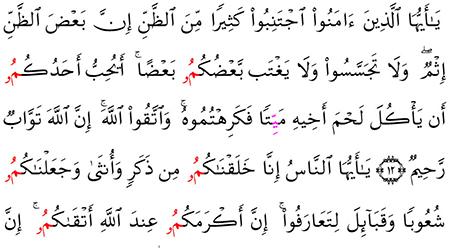 يَٰٓأَيُّهَا ٱلَّذِينَ ءَامَنُواْ ٱجۡتَنِبُواْ كَثِيرٗا مِّنَ ٱلظَّنِّ إِنَّ بَعۡضَ ٱلظَّنِّ
إِثۡمٞۖ وَلَا تَجَسَّسُواْ وَلَا يَغۡتَب بَّعۡضُكُمُۥ بَعۡضًاۚ أَيُحِبُّ أَحَدُكُمُۥ
أَن يَأۡكُلَ لَحۡمَ أَخِيهِ مَيِّتٗا فَكَرِهۡتُمُوهُۚ وَٱتَّقُواْ ٱللَّهَۚ إِنَّ ٱللَّهَ تَوَّابٞ
رَّحِيمٞ ۝١٢ يَٰٓأَيُّهَا ٱلنَّاسُ إِنَّا خَلَقۡنَٰكُمُۥ مِن ذَكَرٖ وَأُنثَىٰ وَجَعَلۡنَٰكُمُۥ
شُعُوبٗا وَقَبَآئِلَ لِتَعَارَفُوٓاْۚ إِنَّ أَكۡرَمَكُمُۥ عِندَ ٱللَّهِ أَتۡقَىٰكُمُۥۚ إِنَّ